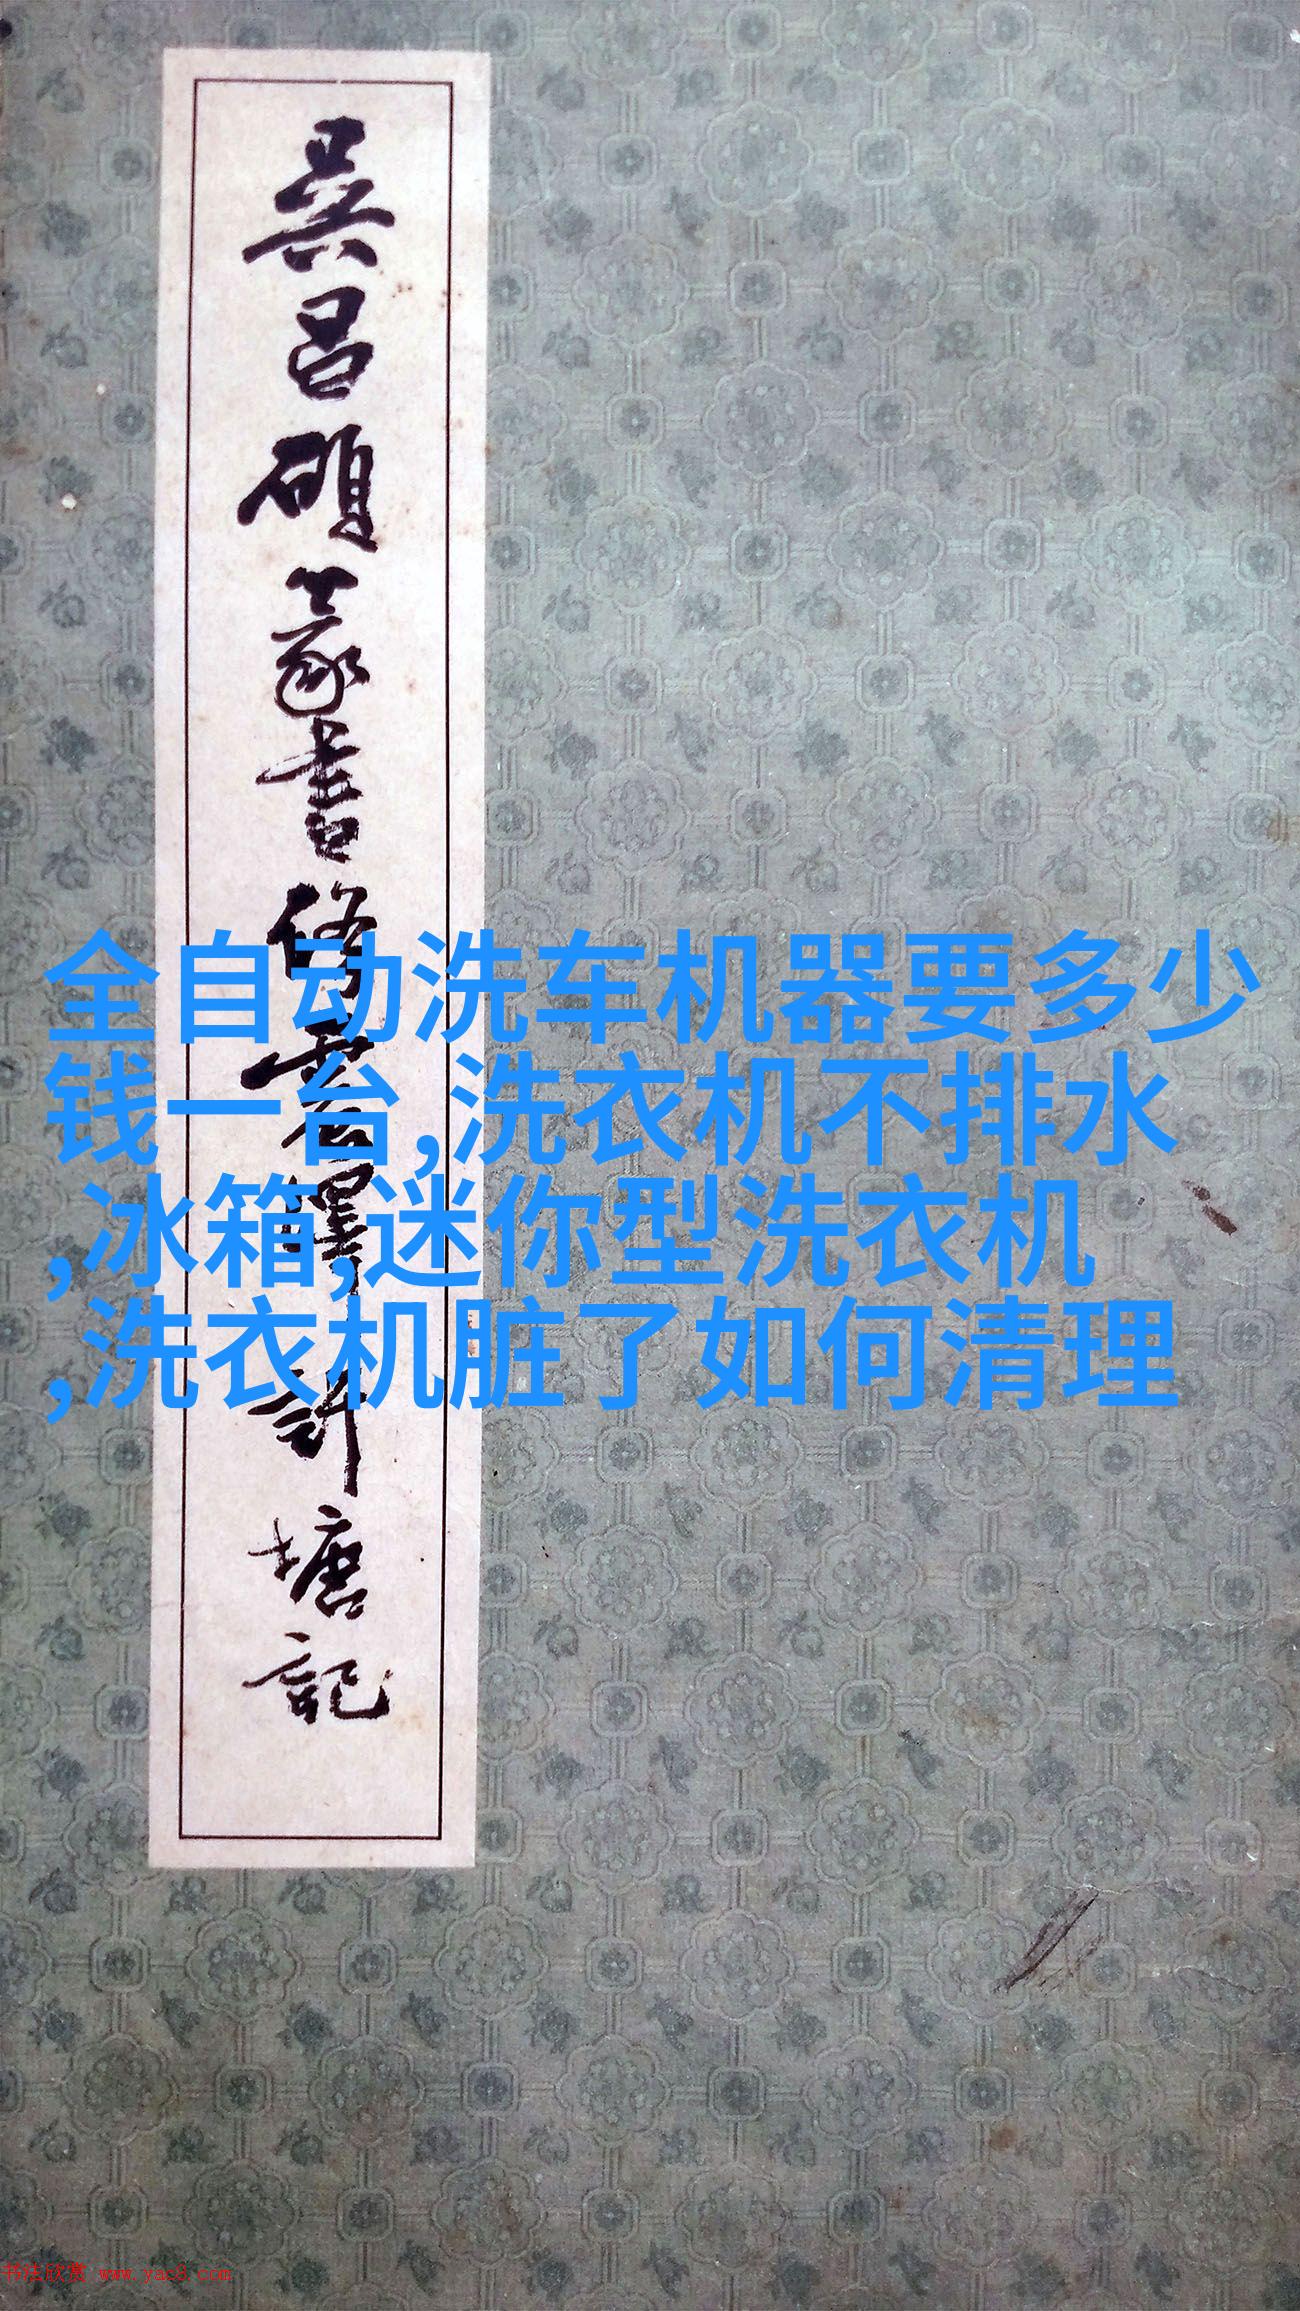 吴昌硕篆书修震泽许塘記
全自动洗车机器要多少
钱一台,洗衣机不排水
,冰箱,迷你型洗衣机
,洗衣机脏了如何清理
书法欣赏 www.yac8.com